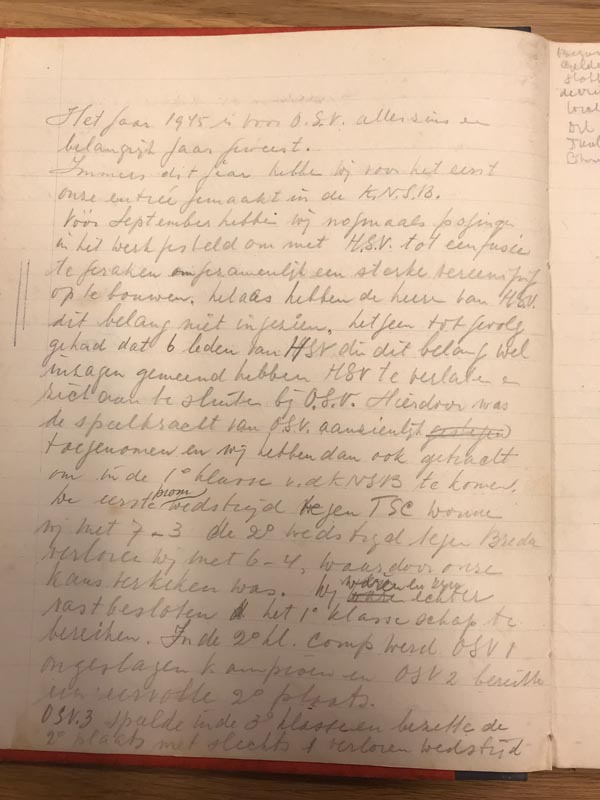 Het Jaar 1945 is voor O.S.V. alleszins en
belangrijk Jaar geweest.
Immers dit jaar hebbe wij voor het eerst
onze entreé gemaakt in de K.N.S.B.
Vóór September hebben wij nogmaals pogingen
in het werk gesteld om met H.S.V. tot een fusie
te geraken om gezamenlijk een sterke vereeniging
op te bouwen, helaas hebben de heeren van H.S.V.
dit belang niet ingezien, hetgeen tot gevolg
gehad dat 6 leden van HSV die dit belang wel
inzagen gemeend hebben HSV te verlaten en
zich aan te sluiten bij O.S.V. Hierdoor was
de speelkracht van O.S.V. aanzienlijk gestegen
toegenomen en wij hebben dan ook getracht
om in de 1e klasse v.d KNSB te komen.
De eerste prom wedstrijd tegen TSC wonnen
wij met 7-3 de 2e wedstrijd tegen Breda
verloren wij met 6-4, waardoor onze
kans verkeken was. Wij waren echter
vastbesloten het 1e klasse schap te
bereiken. In de 2e kl. comp werd OSV 1
ongeslagen kampioen en OSV 2 bereikte
een eervolle 2e plaats.
OSV.3 speelde in de 3e klasse en bezette de
2e plaats met slechts 1 verloren wedstrijd